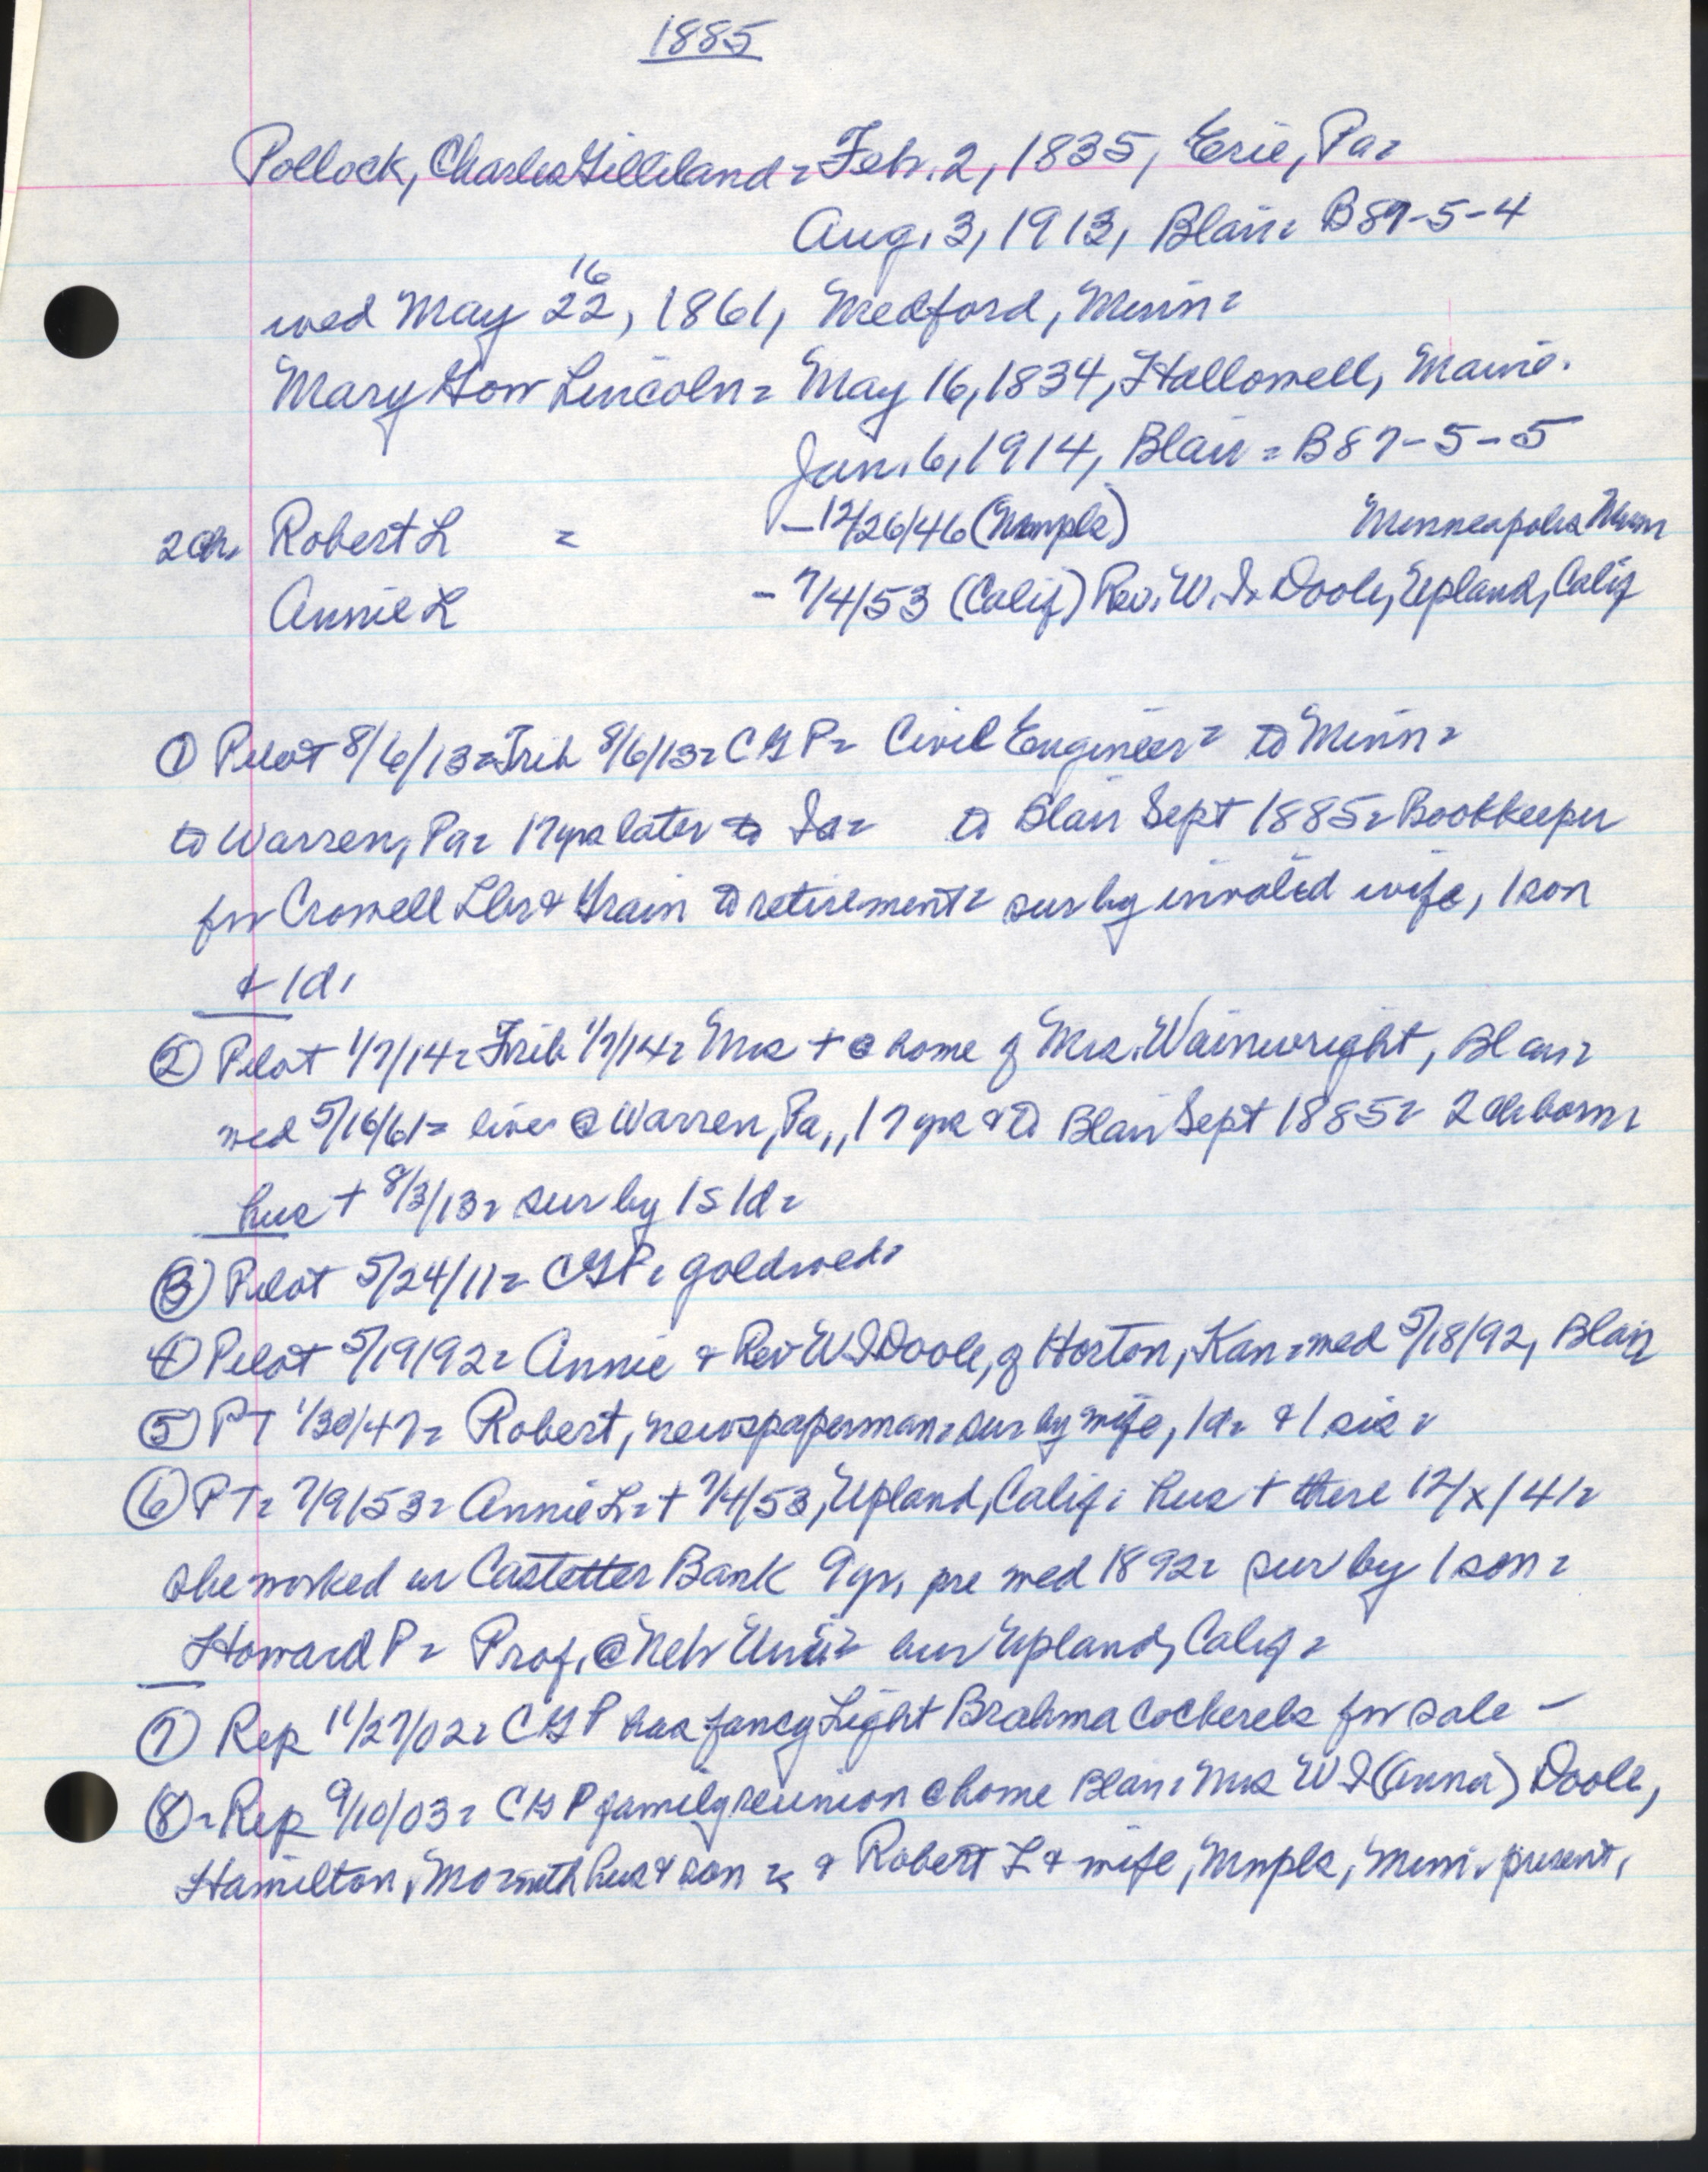 1885
Pollock, Charles Gilliland = Feb. 2, 1835, Erie, Pa =
Aug. 3, 1913, Blair = B87-5-4
16
wed May 22, 1861, Medford, Minn =
Mary Gow Lincoln = May 16, 1834, Hallowell, Maine.
Jan. 6, 1914, Blair = B87-5-5
2 ch. Robert L = -12/26/46 (Mnmpls) Minneapolis Minn
Annie L - 7/4/53 (Calif) Rev. W. I. Doole, Upland, Calif
① Pilot 8/6/13 = Trib 8/6/13 = C G P = Civil Engineer = to Minn =
to Warren, Pa = 17 yrs later to Ia = to Blair Sept 1885 = Bookkeeper
for Crowell Lbr & Grain to retirement = sur by invalid wife, 1 son
& 1 d.
② Pilot 1/7/14 = Trib 1/7/14 = Mrs + @ home of Mrs. Wainwright, Blair =
wed 5/16/61 = live @ Warren, Pa., 17 yrs & to Blair Sept 1885 = 2 ch born =
hus + 8/3/13 = sur by 1 s 1 d =
③ Pilot 5/24/11 = CGP = gold wed =
④ Pilot 5/19/92 = Annie & Rev W I Doole, of Horton, Kan = wed 5/18/92, Blair
⑤ PT 1/30/47 = Robert, newspaperman = sur by wife, 1 d = & 1 sis =
⑥ PT = 7/9/53 = Annie L = + 7/4/53, Upland, Calif = hus + there 12/x/41 =
she worked in Castetter Bank 9 yr. pre wed 1892 = sur by 1 son =
Howard P = Prof. @ Neb Uni = bur Upland, Calif =
⑦ Rep 11/27/02 = C G P has fancy Light Brahma Cockerels for sale -
⑧ = Rep 9/10/03 = C G P family reunion @ home Blair = Mrs W I (Anna) Doole,
Hamilton, Mo = with hus & son = & Robert L & wife, Mnpls, Minn. present.